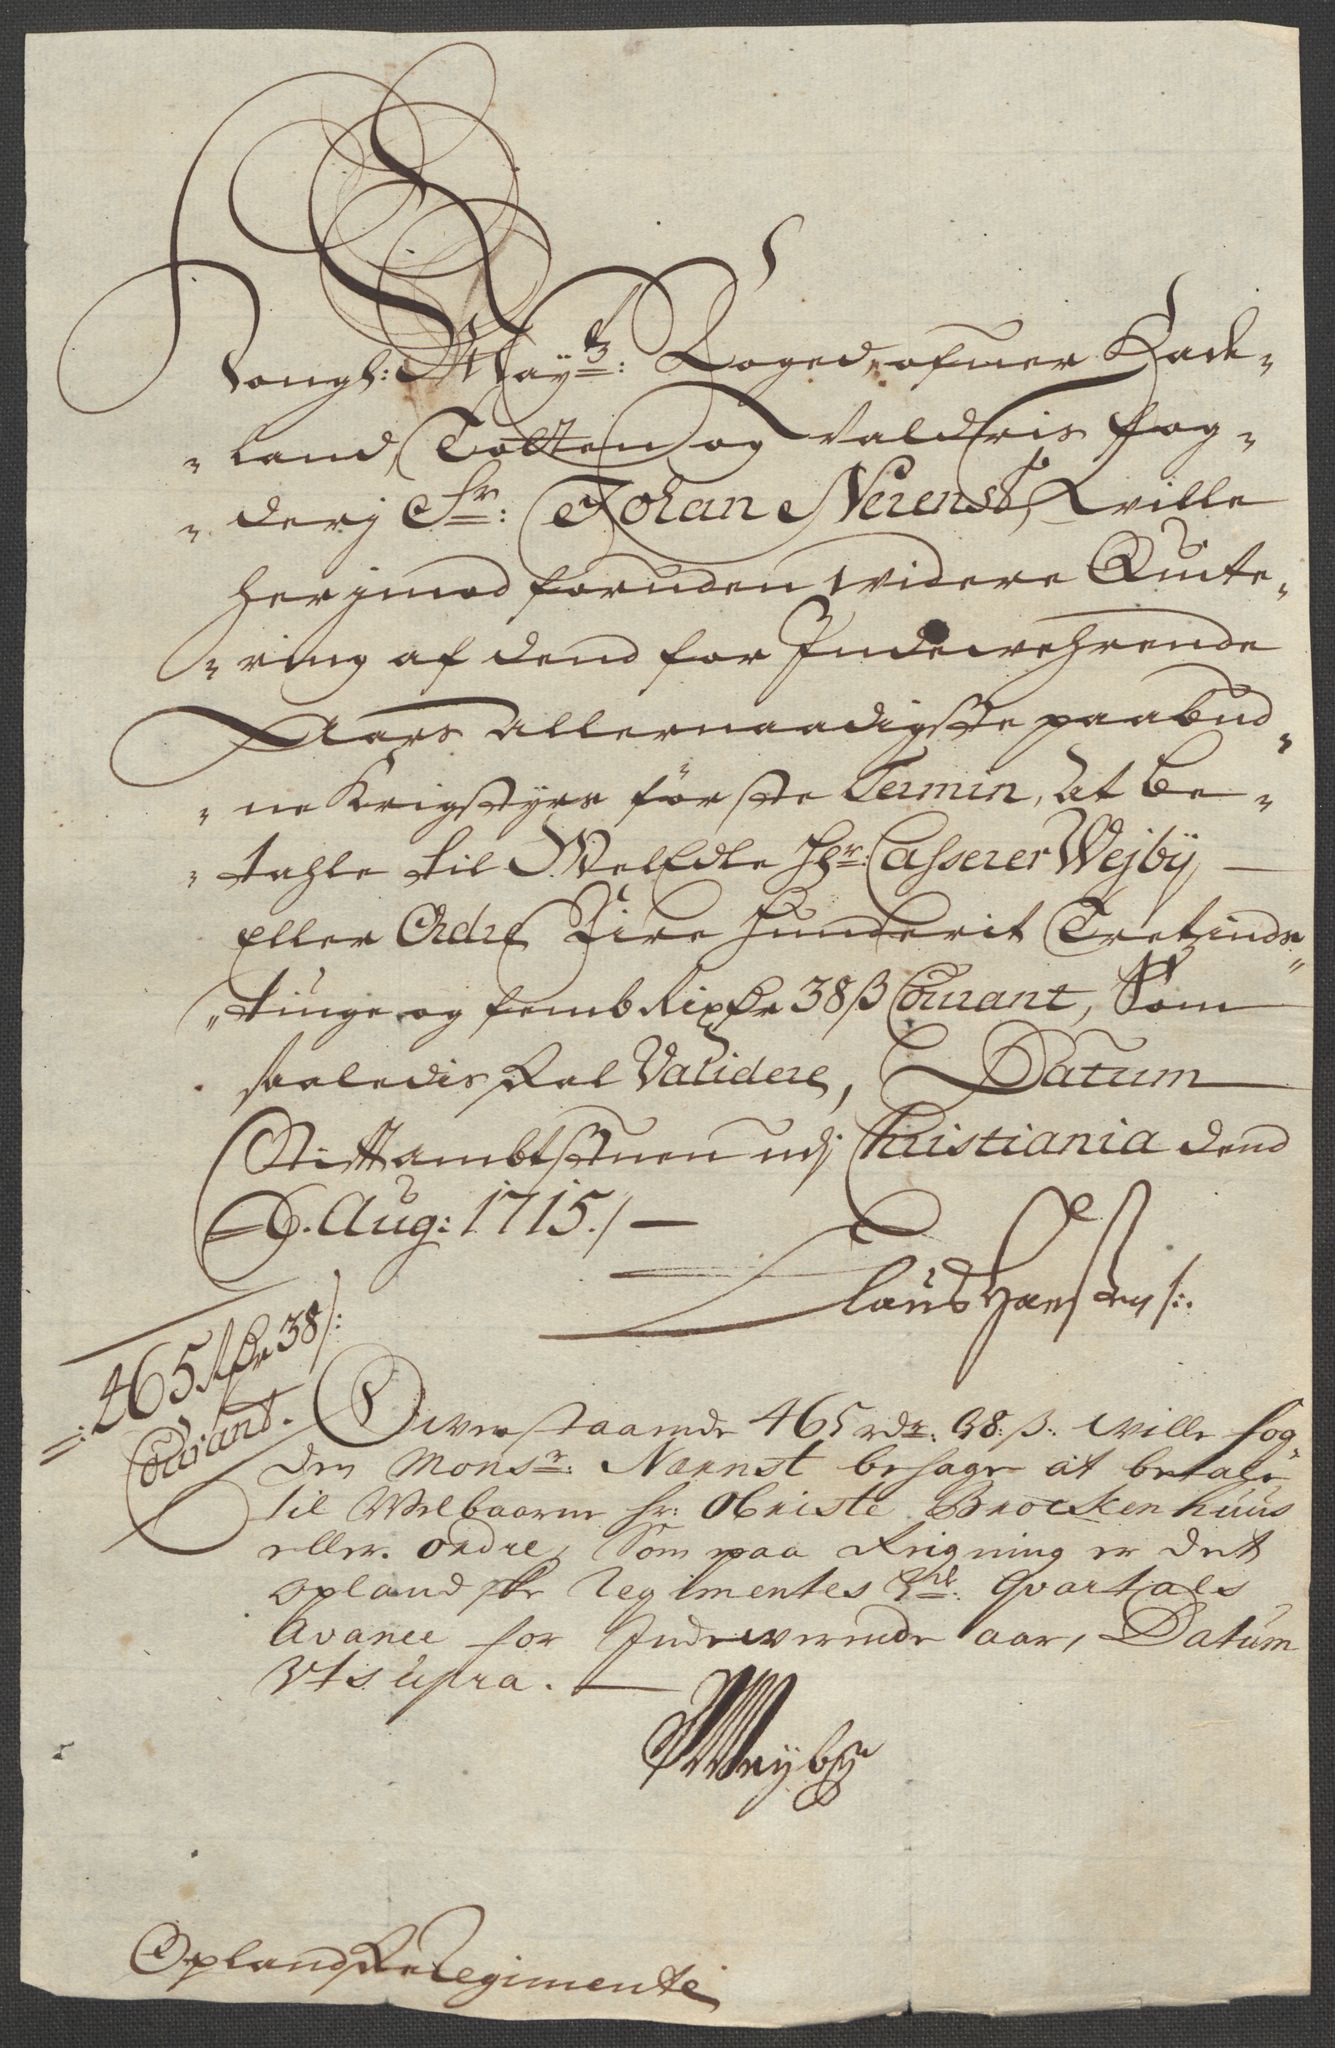 Kongl: May:ts: Foged ofuer Hade-
"land, Totten og Valdris fog-
"derj Sr: Johan Nerenst, wille
herjmod foruden widere Quite-
"ring af dend for Indewehrende
Aars allernaadigste paabud-
"ne Krigstyrs förste Termin, at be-
"tahle til WelEdle Hr: Casserer Wejbÿ
eller Ordre Fire Hunderit Tretzinds-
"tiuge og femb Rixdr 38 ß Courant, Som
saaledis skal Validere, Datum
Stiftambtstuen udj Christiania dend
6. Aug: 1715./
Claus
465 Rdr 38 ß:
Courant.
Owenstaaende 465 rdr: 38: ß: wille fog-
den Monsr: Nærnst behage at betale
til Welbaarne hr: Obriste Brockenhuus
eller ordre, Som paa Reigning er det
oplandske Regimentes 3de: Qvartals
Avance for Indewerende aar, Datum
Vt supra.
Weyby
Oplandske Regimente